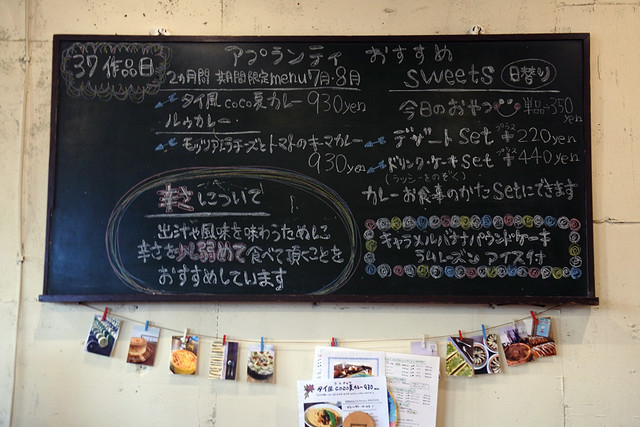 37作品目
アプランティ おすすめ
2ヵ月間 期間限定menu 7月・8月
タイ風coco夏カレー 930yen
ルゥカレー
モッツァレラチーズとトマトのキーマカレー
930yen
辛さについて
出汁や風味を味わうために
辛さを少し弱めて食べて頂くことを
おすすめしています
sweets 日替り
今日のおやつ 単品 350yen
デザートset プラス ¥220yen
ドリンク・ケーキset プラス ¥440yen
(ラッシーをのぞく)
カレーお食事のかたsetにできます
キャラメルバナナパウンドケーキ
ラムレーズン アイス付
タイ風coco夏カレー930